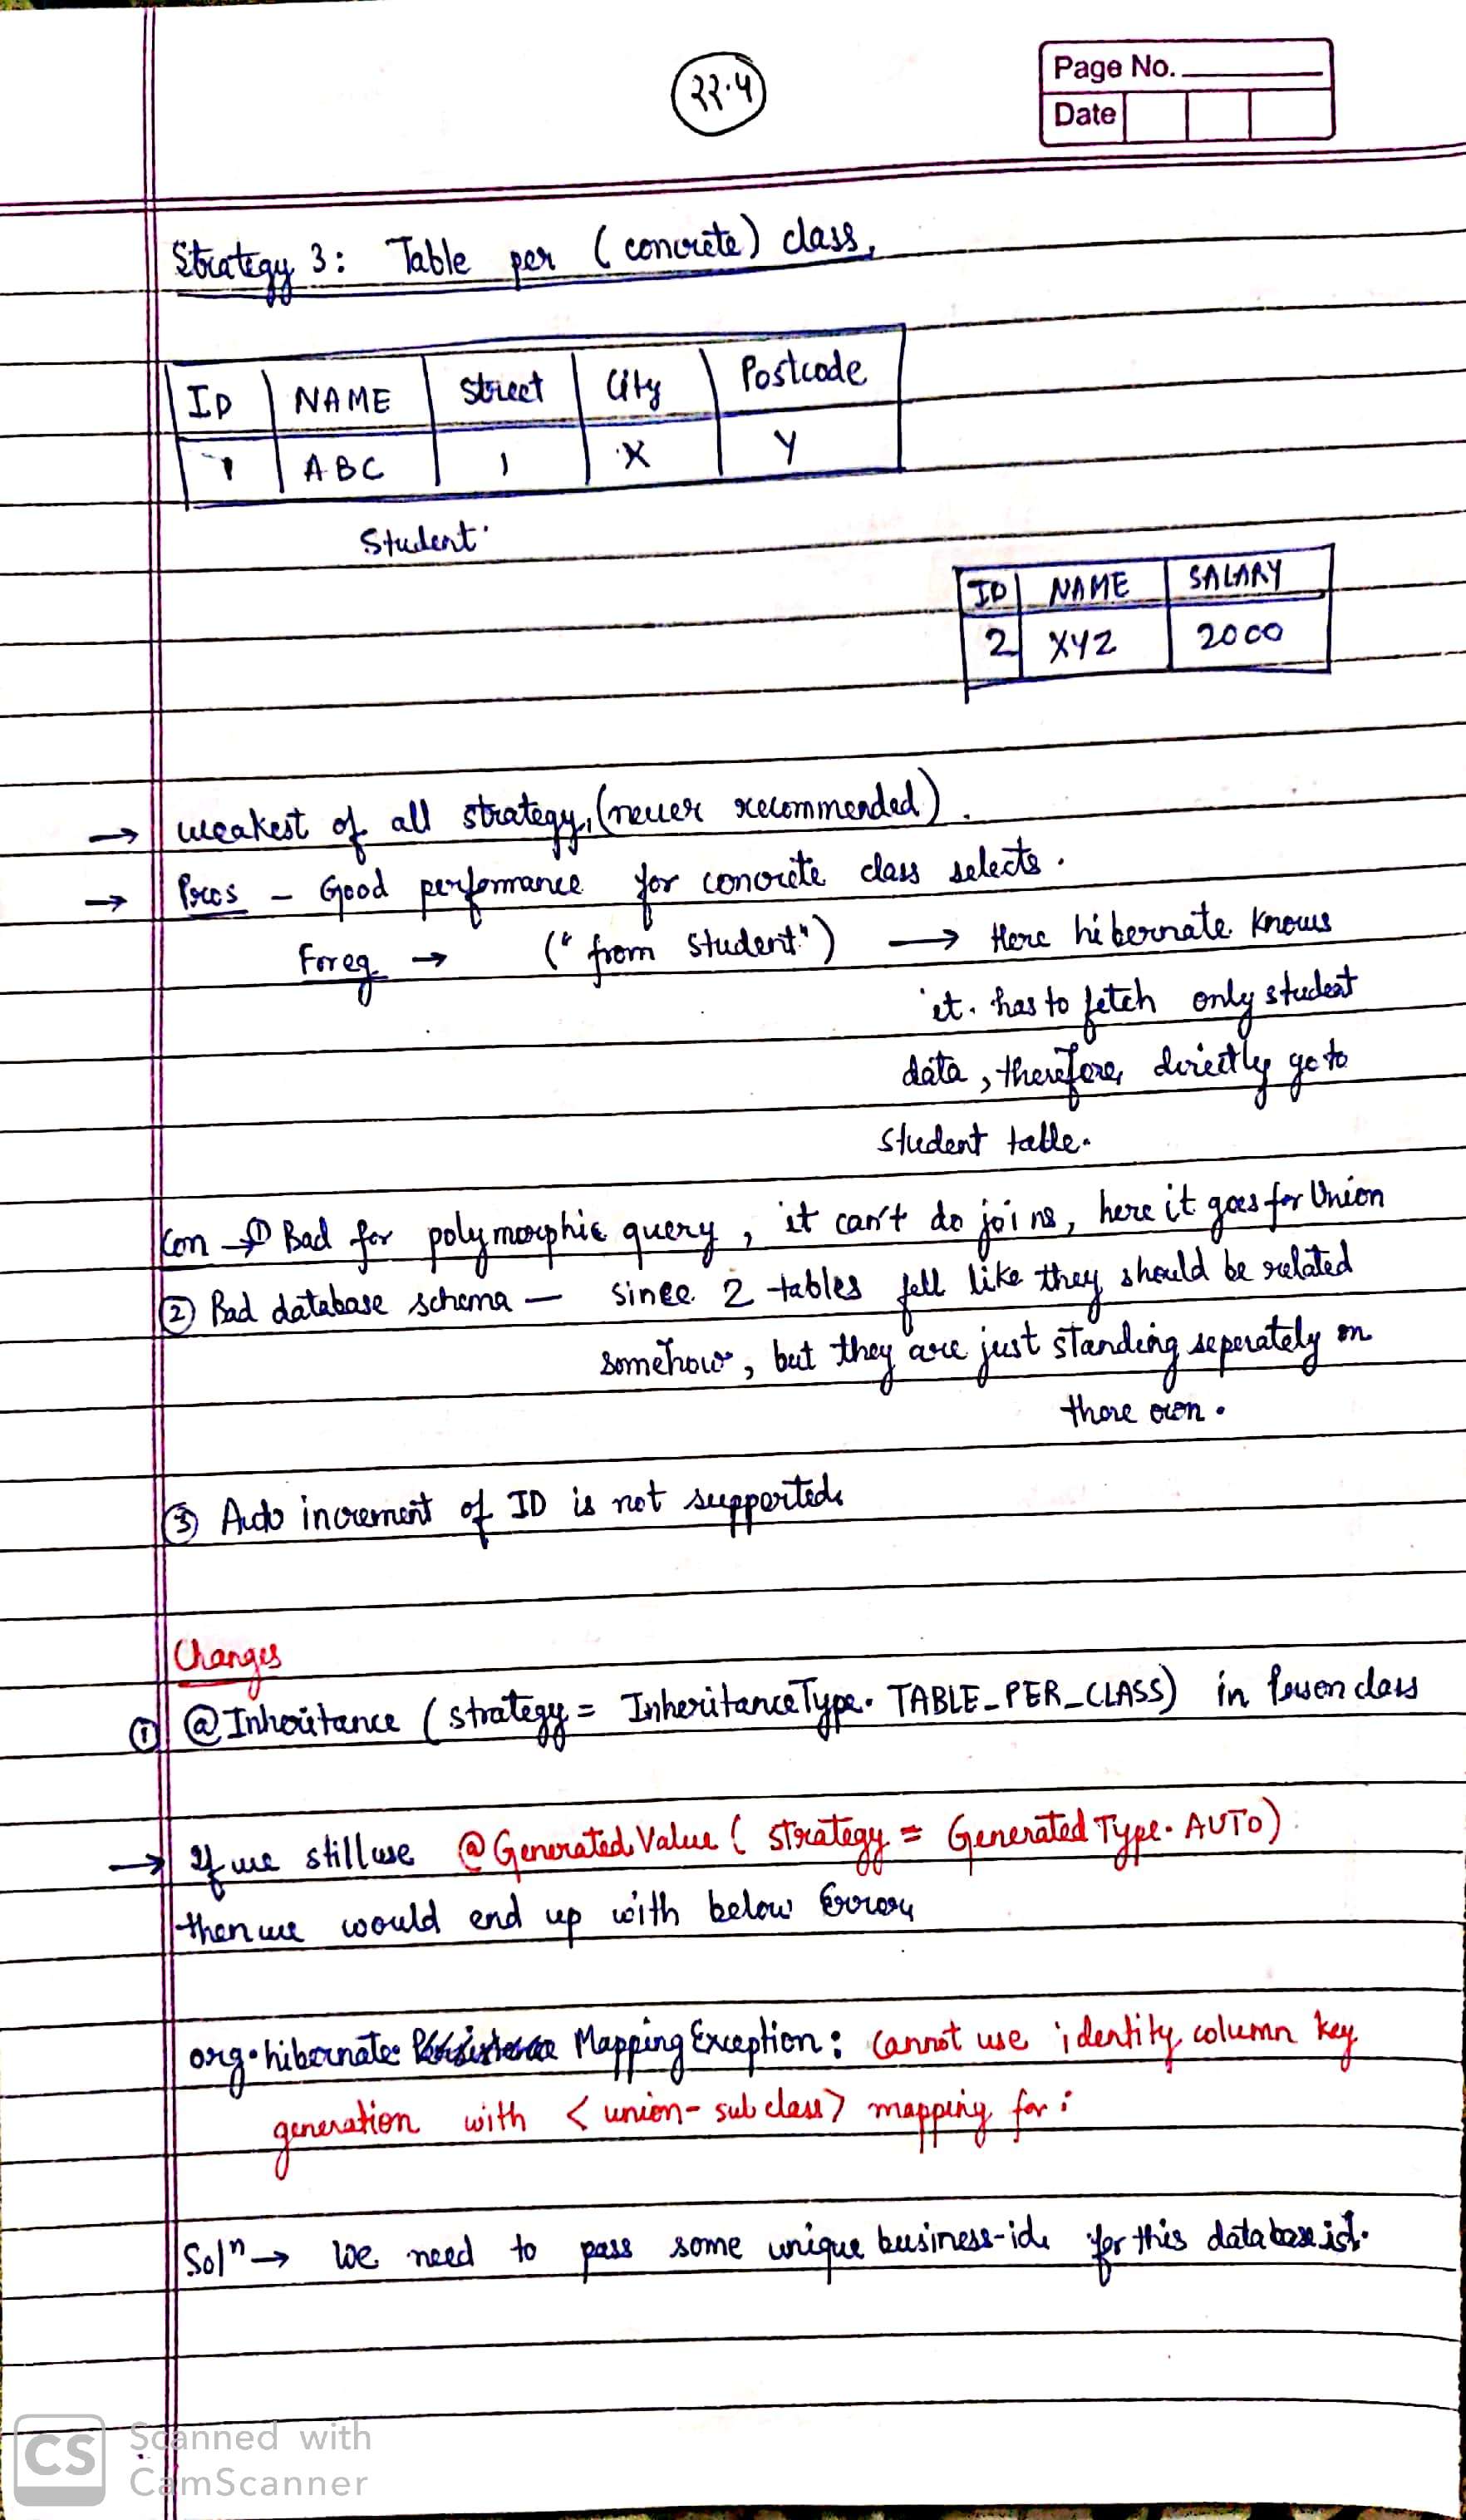 २२.५
Page No.
Date
Strategy 3: Table per (concrete) class,
ID NAME Street City Postcode
1 ABC 1 X Y
Student
ID NAME SALARY
2 XYZ 2000
→ weakest of all strategy, (never recommended).
→ Pros - Good performance for concrete class selects.
For eg → ("from student") → Here hibernate knows
it. has to fetch only student
data, therefore, directly go to
student table.
Con → ① Bad for polymorphic query, it can't do joins, here it goes for Union
② Bad database schema - since 2 tables fell like they should be related
somehow, but they are just standing seperately on
there own.
③ Auto increment of ID is not supported.
Changes
① @Inheritance (strategy = InheritanceType. TABLE_PER_CLASS) in Person class
→ If we still use @GeneratedValue (strategy = GeneratedType. AUTO)
then we would end up with below Error
org.hibernate. MappingException: cannot use identity column key
generation with <union-subclass> mapping for:
Solⁿ → We need to pass some unique business-id. for this database id.
CS Scanned with
CamScanner